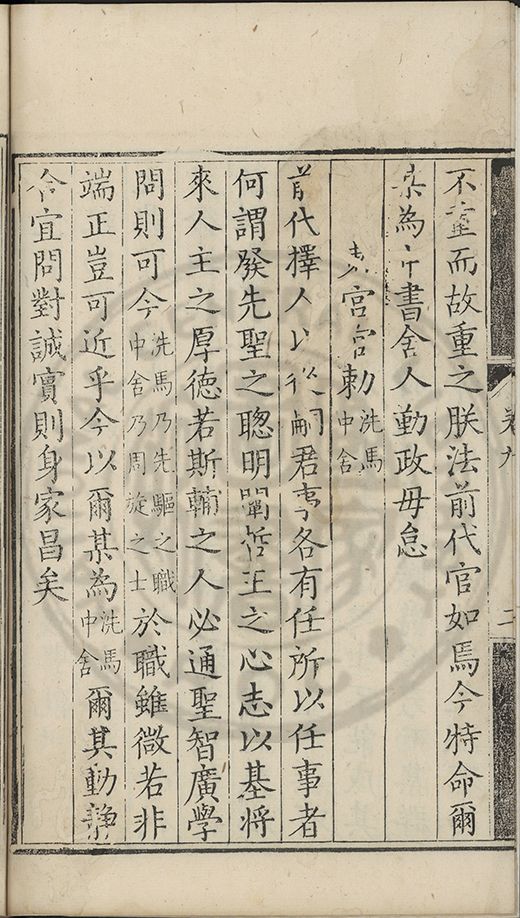 不輕而故重之朕法前代官如焉今特命爾
某為中書舍人勤政毋怠
東宮官勑洗馬中舍
前代擇人以從嗣君事各有任所以任事者
何謂發先聖之聰明闡哲王之心志以基將
來人主之厚德若斯輔之人必通聖智廣學
問則可今洗馬乃先驅之職中舍乃周旋之士於職雖微若非
端正豈可近乎今以爾某為洗馬中舍爾其動靜
合宜問對誠實則身家昌矣
卷九
二